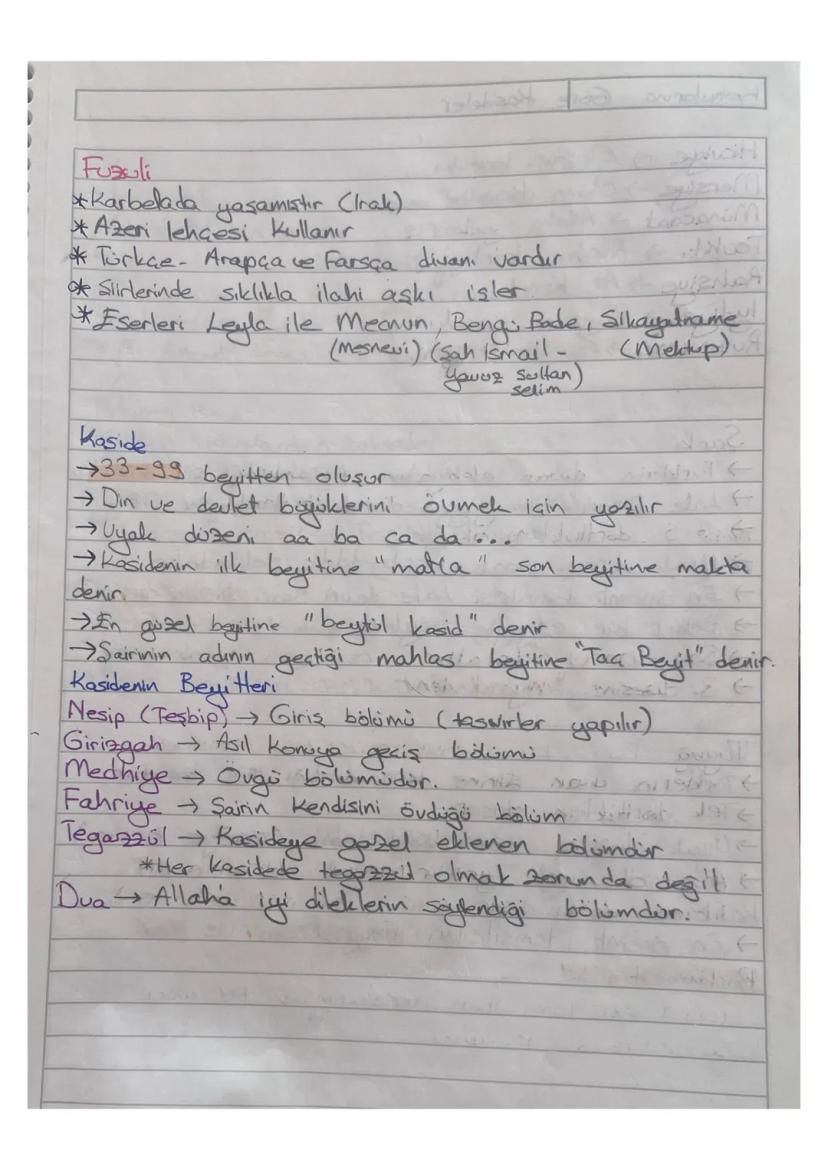 Fuzuli
*Karbelada yaşamıştır (Irak)
*Azeri lehçesi kullanır
*Türkçe - Arapça ve Farsça divanı vardır
*Şiirlerinde sıklıkla ilahi aşkı işler
*Eserleri Leyla ile Mecnun, Beng i Bade, Şikayatname
(Mesnevi) (Şah İsmail - (Mektup)
Yavuz Sultan)
Selim
Kaside
→33-99 beyitten oluşur
→Din ve devlet büyüklerini övmek için yazılır
→Uyak düzeni aa ba ca da ...
→Kasidenin ilk beyitine "matla" son beyitine makta
denir.
→En güzel beyitine "beytül kasid" denir
→Şairinin adının geçtiği mahlas beyitine "Tac Beyit" denir.
Kasidenin Beyitleri
Nesip (Teşbip) → Giriş bölümü (tasvirler yapılır)
Girizgah → Asıl konuya geçiş bölümü
Medhiye → Övgü bölümüdür.
Fahriye → Şairin kendisini övdüğü bölüm
Tegazzül → Kasideye gazel eklenen bölümdür
*Her kasidede tegazzül olmak zorunda değil
Dua → Allah'a iyi dileklerin söylendiği bölümdür.